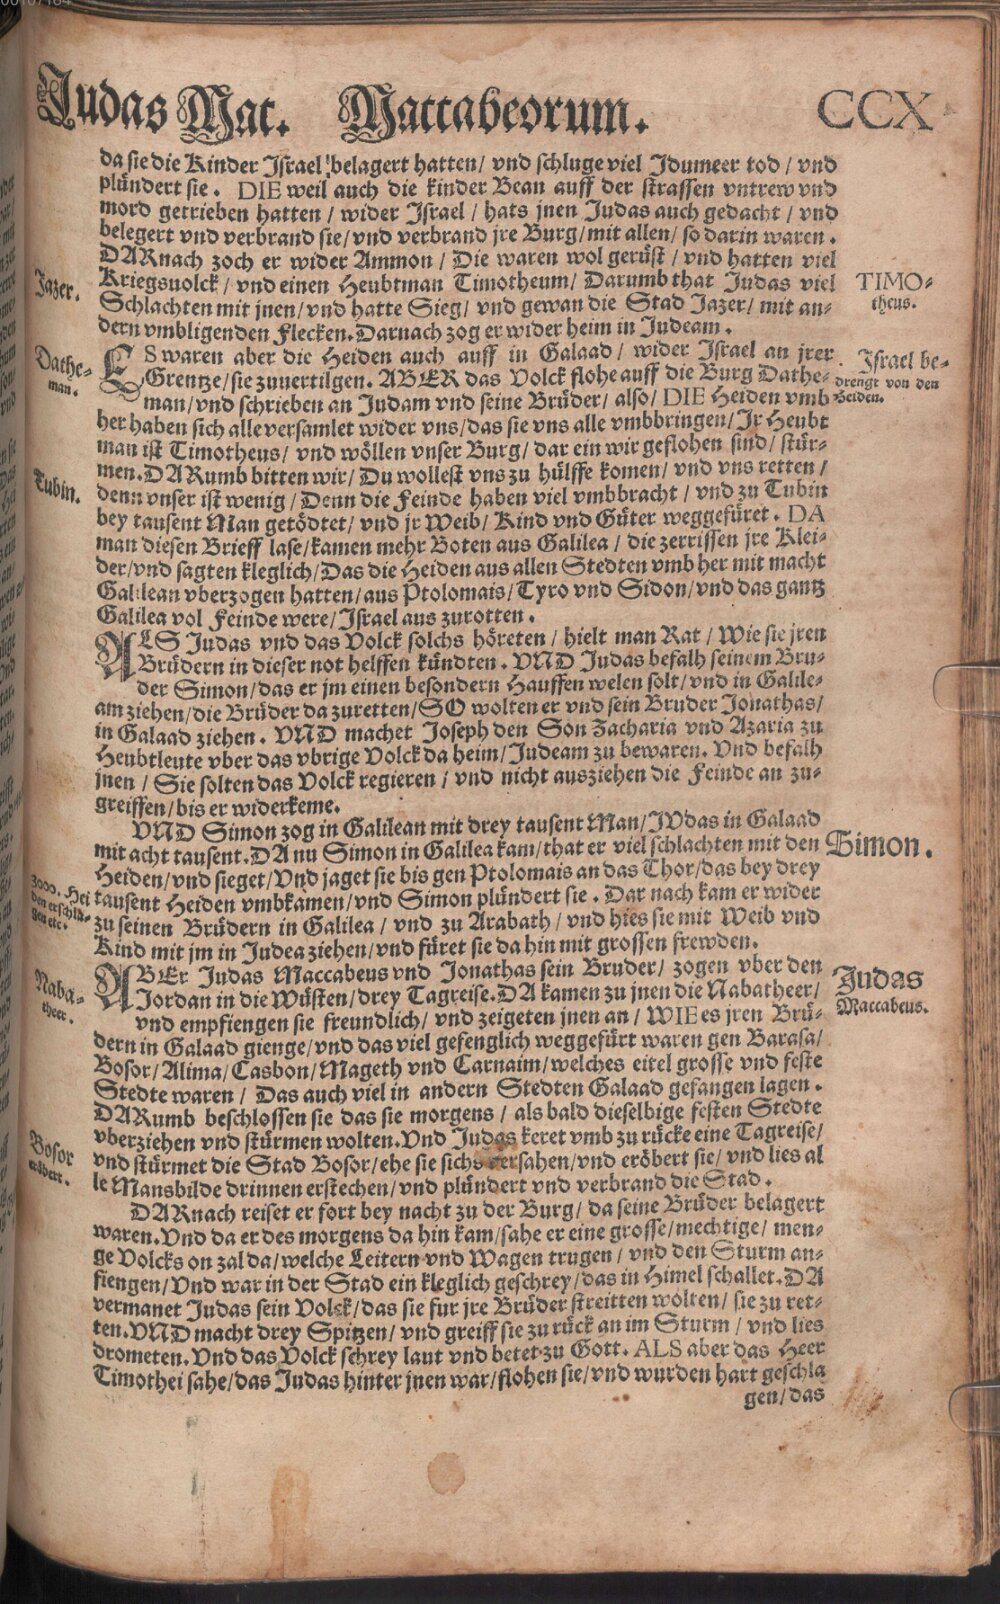 Judas Mac. Maccabeorum. CCX
da sie die Kinder Israel belagert hatten/ vnd schluge viel Idumeer tod / vnd
plündert sie. DIE weil auch die kinder Bean auff der strassen vntrew vnd
mord getrieben hatten / wider Israel / hats jnen Judas auch gedacht / vnd
belegert vnd verbrand sie/ vnd verbrand jre Burg/ mit allen/ so darin waren.
DARnach zoch er wider Ammon / Die waren wol gerüst / vnd hatten viel
Jazer.
Kriegsuolck / vnd einen Heubtman Timotheum/ Darumb that Judas viel
TIMO-
theus.
Schlachten mit jnen/ vnd hatte Sieg/ vnd gewan die Stad Jazer/ mit an-
dern vmbligenden Flecken. Darnach zog er wider heim in Judeam.
Dathe-
man.
ES waren aber die Heiden auch auff in Galaad / wider Israel an jrer
Israel be-
drengt von den
Heiden.
Grentze/ sie zuuertilgen. ABER das Volck flohe auff die Burg Dathe-
man/ vnd schrieben an Judam vnd seine Brüder/ also/ DIE Heiden vmb
her haben sich alle versamlet wider vns/ das sie vns alle vmbbringen/ Jr Heubt
man ist Timotheus/ vnd wöllen vnser Burg/ dar ein wir geflohen sind/ stür-
men. DARumb bitten wir/ Du wollest vns zu hülffe komen/ vnd vns retten /
Tubin.
denn vnser ist wenig / Denn die Feinde haben viel vmbbracht / vnd zu Tubin
bey tausent Man getödtet/ vnd jr Weib/ Kind vnd Güter weggefüret. DA
man diesen Brieff lase/ kamen mehr Boten aus Galilea / die zerrissen jre Klei-
der/ vnd sagten kleglich/ Das die Heiden aus allen Stedten vmb her mit macht
Galilean vberzogen hatten/ aus Ptolomais/ Tyro vnd Sidon/ vnd das gantz
Galilea vol Feinde were/ Israel aus zurotten.
ALS Judas vnd das Volck solchs höreten / hielt man Rat / Wie sie jren
Brüdern in dieser not helffen kündten. VND Judas befalh seinem Bru-
der Simon/ das er jm einen besondern Hauffen welen solt/ vnd in Galile-
am ziehen/ die Brüder da zuretten/ SO wolten er vnd sein Bruder Jonathas/
in Galaad ziehen. VND machet Joseph den Son Zacharia vnd Azaria zu
Heubtleute vber das vbrige Volck da heim/ Judeam zu bewaren. Vnd befalh
jnen / Sie solten das Volck regieren / vnd nicht ausziehen die Feinde an zu-
greiffen/ bis er widerkeme.
VND Simon zog in Galilean mit drey tausent Man/ JVdas in Galaad
mit acht tausent. DA nu Simon in Galilea kam/ that er viel schlachten mit den
Simon.
Heiden/ vnd sieget/ Vnd jaget sie bis gen Ptolomais an das Thor/ das bey drey
3000. Hei
den erschla-
gen etc.
tausent Heiden vmbkamen/ vnd Simon plündert sie. Dar nach kam er wider
zu seinen Brüdern in Galilea / vnd zu Arabath / vnd hies sie mit Weib vnd
Kind mit jm in Judea ziehen/ vnd füret sie da hin mit grossen frewden.
Naba-
theer.
ABEr Judas Maccabeus vnd Jonathas sein Bruder/ zogen vber den
Judas
Maccabeus.
Jordan in die Wüsten/ drey Tagreise. DA kamen zu jnen die Nabatheer/
vnd empfiengen sie freundlich/ vnd zeigeten jnen an / WIE es jren Brü-
dern in Galaad gienge/ vnd das viel gefenglich weggefürt waren gen Barasa/
Bosor/ Alima/ Casbon/ Mageth vnd Carnaim/ welches eitel grosse vnd feste
Stedte waren / Das auch viel in andern Stedten Galaad gefangen lagen.
DARumb beschlossen sie das sie morgens / als bald dieselbige festen Stedte
vberziehen vnd stürmen wolten. Vnd Judas keret vmb zu rücke eine Tagreise/
Bosor
eröbert.
vnd stürmet die Stad Bosor/ ehe sie sichs versahen/ vnd eröbert sie/ vnd lies al
le Mansbilde drinnen erstechen/ vnd plündert vnd verbrand die Stad.
DARnach reiset er fort bey nacht zu der Burg/ da seine Brüder belagert
waren. Vnd da er des morgens da hin kam/ sahe er eine grosse/ mechtige/ men-
ge Volcks on zal da/ welche Leitern vnd Wagen trugen / vnd den Sturm an-
fiengen/ Vnd war in der Stad ein kleglich geschrey/ das in Himel schallet. DA
vermanet Judas sein Volck/ das sie fur jre Brüder streitten wolten/ sie zu ret-
ten. VND macht drey Spitzen/ vnd greiff sie zu rück an im Sturm / vnd lies
drometen. Vnd das Volck schrey laut vnd betet zu Gott. ALS aber das Heer
Timothei sahe/ das Judas hinter jnen war/ flohen sie/ vnd wurden hart geschla
gen/ das